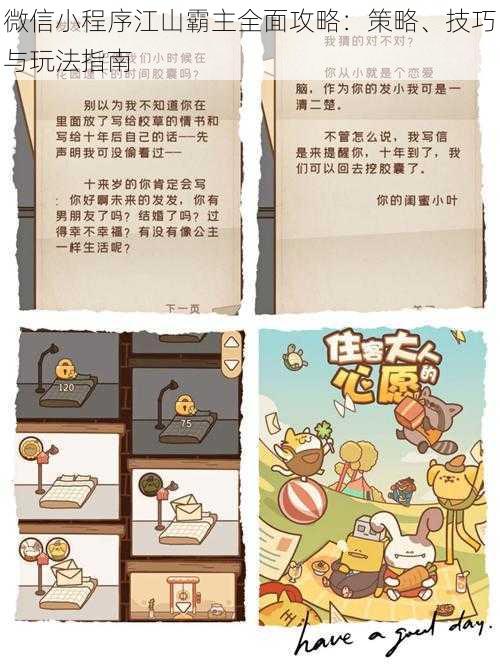 微信小程序江山霸主全面攻略：策略、技巧
与玩法指南
别以为我不知道你在
里面放了写给校草的情书和
写给十年后自己的话——先
声明我可没偷看过——
十来岁的你肯定会写
：你好啊未来的发发，你有
男朋友了吗？结婚了吗？过
得幸不幸福？有没有像公主
一样生活呢？
下一页
我猜的对不对？
你从小就是个恋爱
脑，作为你的发小我可是一
清二楚。
不管怎么说，我写信
是来提醒你，十年到了，我
们可以回去挖胶囊了。
你的闺蜜小叶
120
75
住客大人
的
心愿
have a good day.